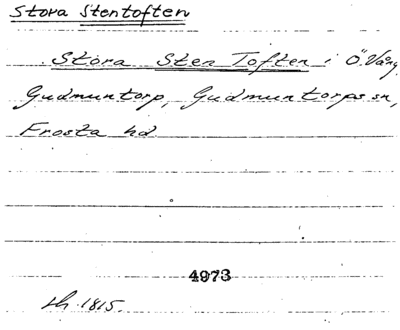 Stora Stentoften
Stora Sten Toften i Ö. Vång
Gudmuntorp, Gudmuntorps sn,
Frosta hd
4973
sk. 1815.